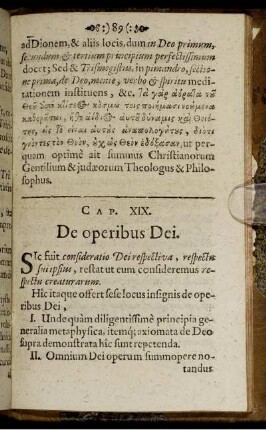 :)89(:
adDionem, & aliis locis, dum in Deo primum,
secundum & tertium principium perfectissimum
docet; Sed & Trismegistus, in pimandro, sectio-
ne prima, de Deo, mente, verbo & spiritu medi-
tationem instituens, &c. Τὰ γὰρ ἀόρατα τοῦ
Θεοῦ ἀπὸ κτίσεως κόσμου τοῖς ποιήμασι νοούμενα
καθορᾶται, ἥτε ἀΐδιος αὐτοῦ δύναμις καὶ Θειό-
της, εἰς τὸ εἶναι αὐτοὺς ἀναπολογήτους, διότι
γνόντες τὸν Θεὸν, οὐχ ὡς Θεὸν ἐδόξασαν, ut per-
quam optimè ait summus Christianorum
Gentilium & judæorum Theologus & Philo-
sophus.
CAP. XIX.
De operibus Dei.
SIc fuit consideratio Dei respectiva, respectu
sui ipsius, restat ut eum consideremus re-
spectu creaturarum.
Hic itaque offert sese locus insignis de ope-
ribus Dei,
I. Unde quàm diligentissimè principia ge-
neralia metaphysica, itemq; axiomata de Deo
supra demonstrata hic sunt repetenda.
II. Omnium Dei operum summopere no-
tandus